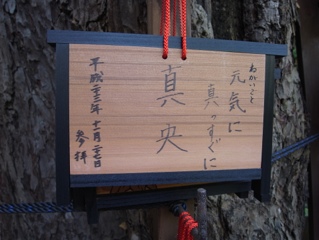 ねがいごと
元気に
真っすぐに
真央
平成二十三年 十二月二十七日
参拝